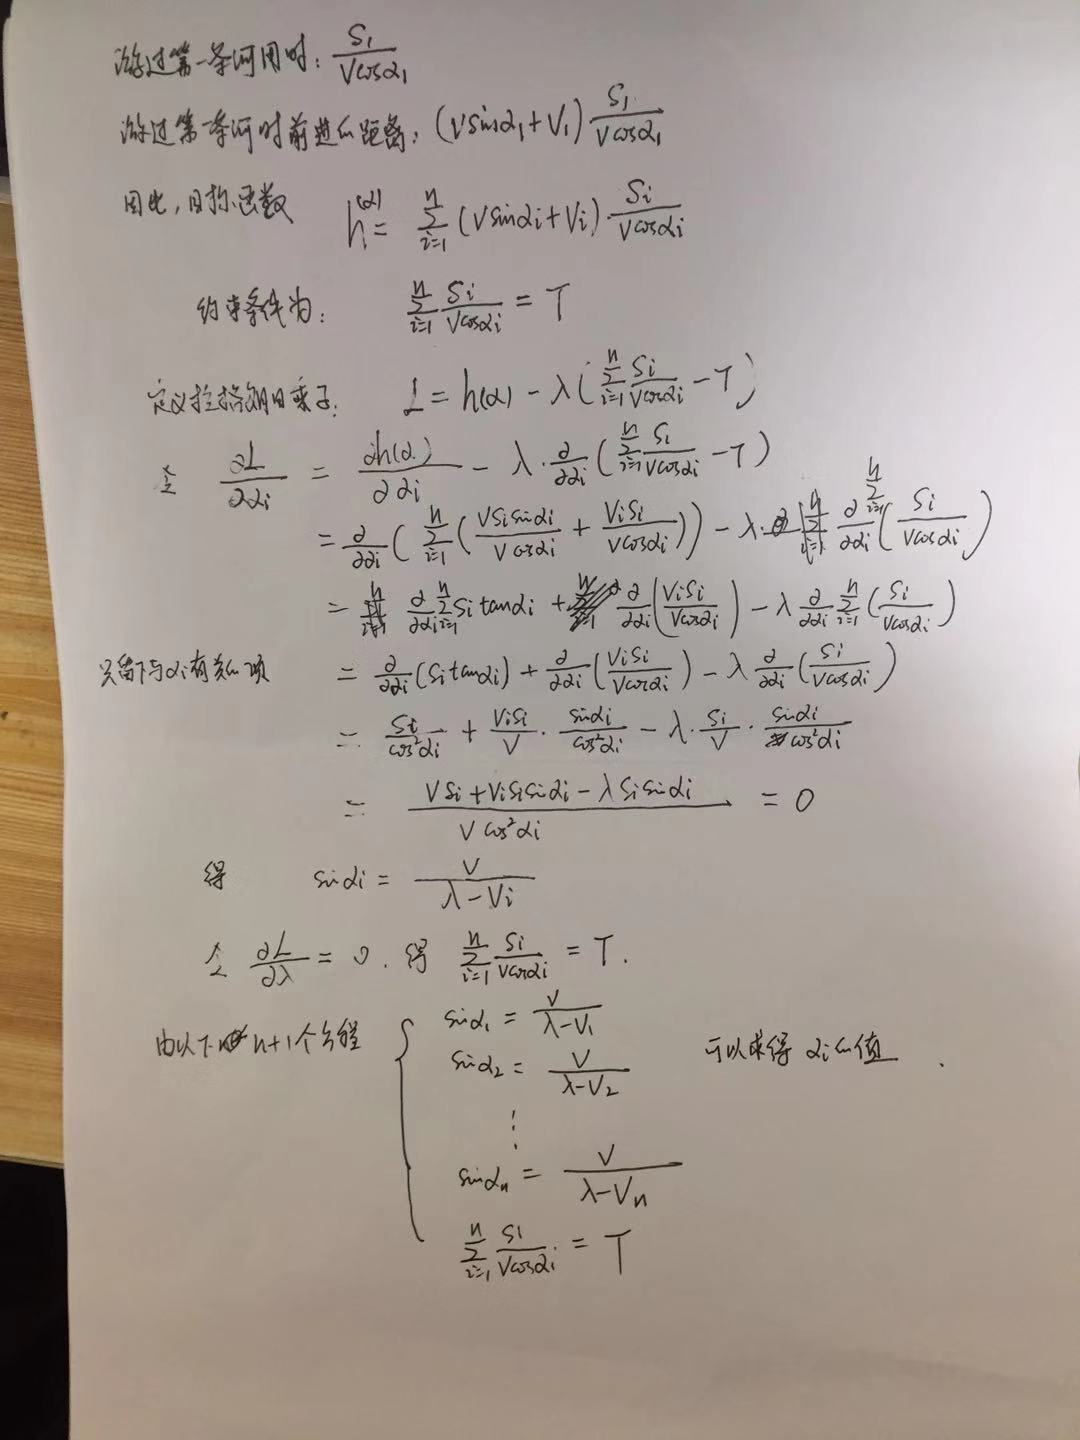 游过第一条河用时: S₁/(Vcosα₁)
游过第一条河时前进的距离: (Vsinα₁+V₁) S₁/(Vcosα₁)
因此,目标函数 h(α) = Σ_{i=1}^{n} (Vsinαi+Vi)·Si/(Vcosαi)
约束条件为: Σ_{i=1}^{n} Si/(Vcosαi) = T
定义拉格朗日乘子: L = h(α) - λ(Σ_{i=1}^{n} Si/(Vcosαi) - T)
令 ∂L/∂αi = ∂h(α)/∂αi - λ·∂/∂αi (Σ_{i=1}^{n} Si/(Vcosαi) - T)
= ∂/∂αi (Σ_{i=1}^{n} (VSisinαi/(Vcosαi) + ViSi/(Vcosαi))) - λ· ∂/∂αi Σ_{i=1}^{n} (Si/(Vcosαi))
= ∂/∂αi Σ_{i=1}^{n} Si tanαi + ∂/∂αi (ViSi/(Vcosαi)) - λ ∂/∂αi Σ_{i=1}^{n} (Si/(Vcosαi))
只留下与αi有关的项 = ∂/∂αi (Si tanαi) + ∂/∂αi (ViSi/(Vcosαi)) - λ ∂/∂αi (Si/(Vcosαi))
= Si/cos²αi + ViSi/V · sinαi/cos²αi - λ·Si/V · sinαi/cos²αi
= (VSi+ViSisinαi-λSisinαi)/(Vcos²αi) = 0
得 sinαi = V/(λ-Vi)
令 ∂L/∂λ = 0. 得 Σ_{i=1}^{n} Si/(Vcosαi) = T.
由以下n+1个方程 { sinα₁ = V/(λ-V₁)
sinα₂ = V/(λ-V₂) 可以求得 αi的值.
⋮
sinαn = V/(λ-Vn)
Σ_{i=1}^{n} Si/(Vcosαi) = T